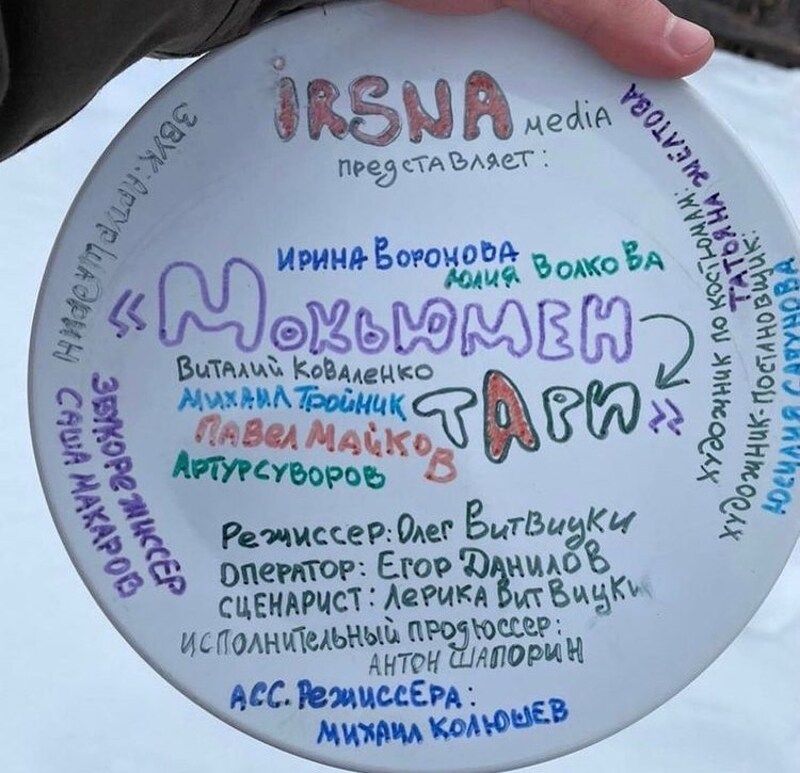 iRSNA медiA
представляет:
Ирина Воронова
Юлия Волкова
«Мокьюмен
тари»
Виталий Коваленко
Михаил Тройник
Павел Майков
Артур Суворов
Режиссер: Олег Витвицки
Оператор: Егор Данилов
Сценарист: Лерика Витвицки
исполнительный продюссер:
Антон Шапорин
Асс. Режиссера:
Михаил Колюшев
Звук: Артур
Звукорежиссер
Саша Макаров
Татьяна Желтова
художник по костюмам:
художник-постановщик: